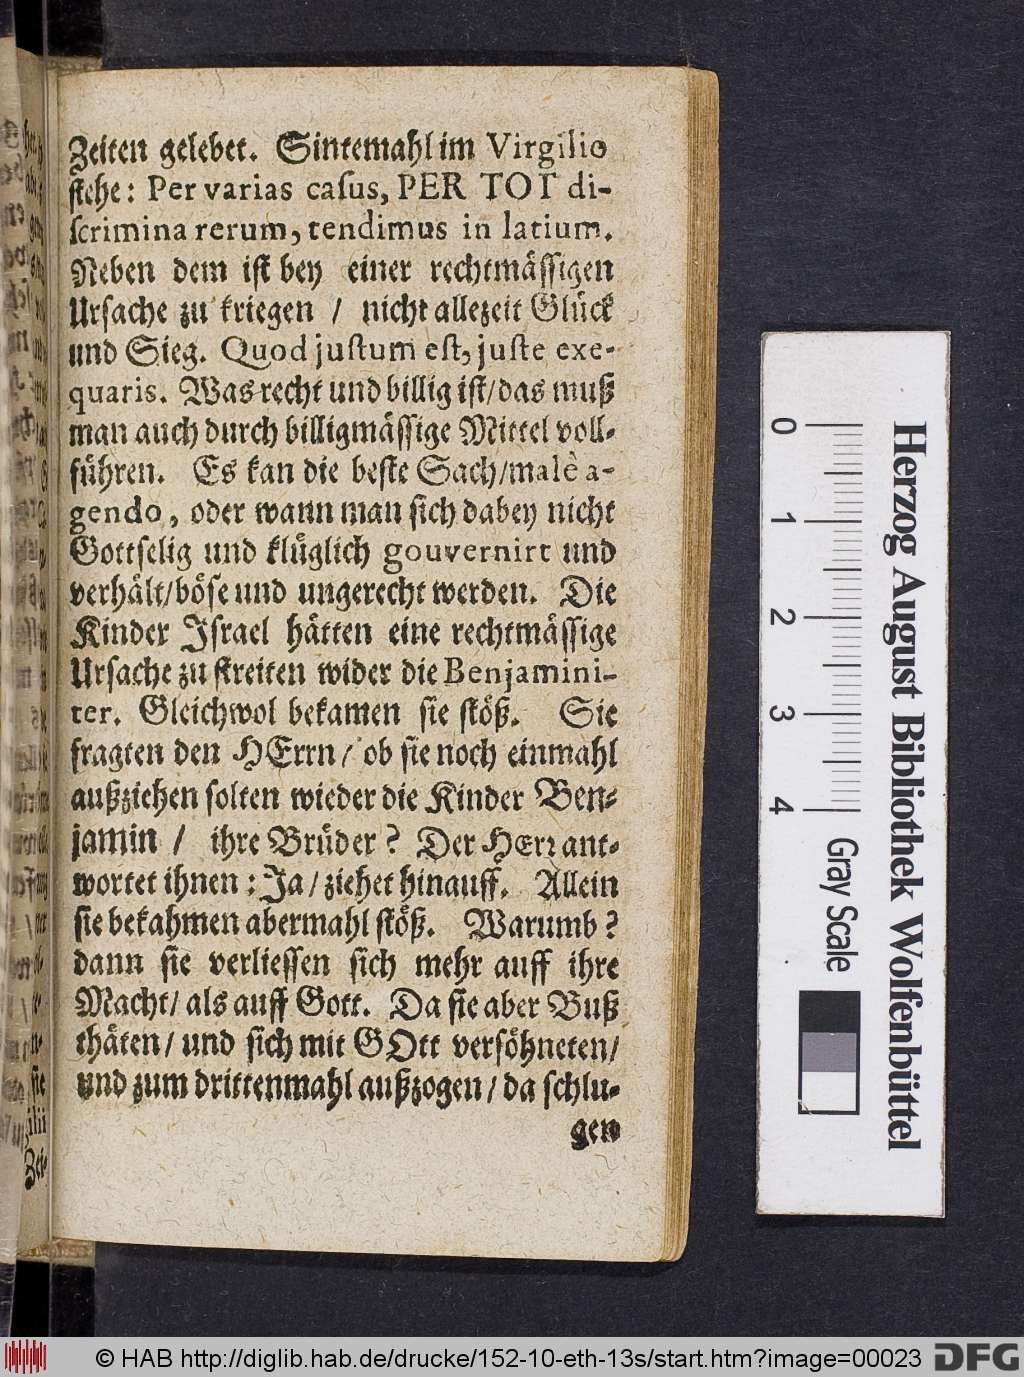 Zeiten gelebet. Sintemahl im Virgilio
stehe: Per varias casus, PER TOT di-
scrimina rerum, tendimus in latium.
Neben dem ist bey einer rechtmässigen
Ursache zu kriegen / nicht allezeit Glück
und Sieg. Quod justum est, juste exe-
quaris. Was recht und billig ist/das muß
man auch durch billigmässige Mittel voll-
führen. Es kan die beste Sach/malè a-
gendo, oder wann man sich dabey nicht
Gottselig und klüglich gouvernirt und
verhält/böse und ungerecht werden. Die
Kinder Israel hätten eine rechtmässige
Ursache zu streiten wider die Benjamini-
ter. Gleichwol bekamen sie stöß. Sie
fragten den HErrn/ ob sie noch einmahl
außziehen solten wieder die Kinder Ben-
jamin / ihre Brüder? Der HErr ant-
wortet ihnen: Ja/ziehet hinauff. Allein
sie bekahmen abermahl stöß. Warumb?
dann sie verliessen sich mehr auff ihre
Macht/ als auff Gott. Da sie aber Buß
thäten/ und sich mit GOtt versöhneten/
und zum drittenmahl außzogen/da schlu-
gen
0 1 2 3 4
Gray Scale
Herzog August Bibliothek Wolfenbüttel
© HAB http://diglib.hab.de/drucke/152-10-eth-13s/start.htm?image=00023
DFG